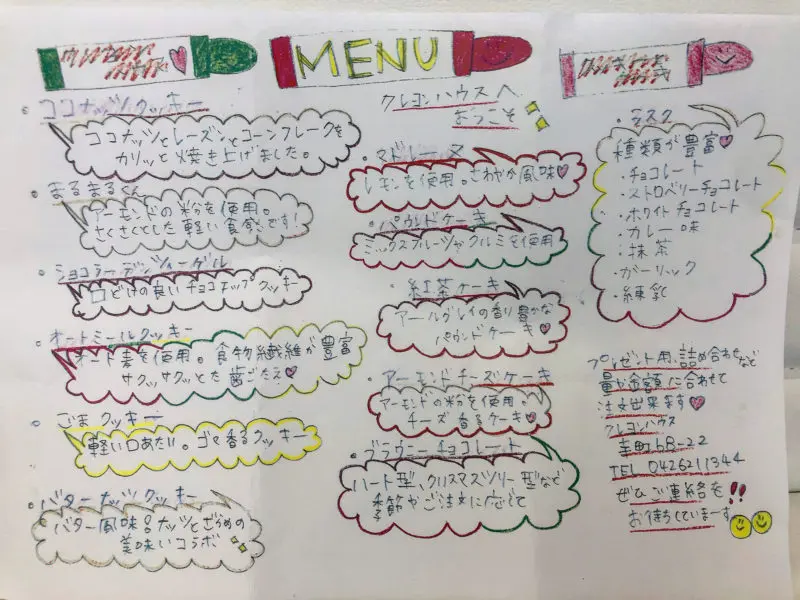 MENU
クレヨンハウスへ
おうこそ
・ココナッツクッキー
ココナッツとレーズンとコーンフレークを
カリッと焼き上げました。
・まるまるくん
アーモンドの粉を使用。
さくさくとした軽い食感です!
・ショコラーデンクーゲル
口どけの良いチョコチップクッキー
・オートミールクッキー
オート麦を使用。食物繊維が豊富
サクッサクッとた歯ごたえ
・ごまクッキー
軽い口あたり。ゴマ香るクッキー
・バターナッツクッキー
バター風味のナッツとざらめの
美味いコラボ
・マドレーヌ
レモンを使用。さわやか風味
・パウンドケーキ
ミックスフルーツやクルミを使用
・紅茶ケーキ
アールグレイの香り豊かな
パウンドケーキ
・アーモンドチーズケーキ
アーモンドの粉を使用。
チーズ香るケーキ
・ブラウニーチョコレート
ハート型、クリスマスツリー型など
季節やご注文に応じて
・ラスク
種類が豊富
・チョコレート
・ストロベリーチョコレート
・ホワイトチョコレート
・カレー味
・抹茶
・ガーリック
・練乳
プレゼント用、詰め合わせなど
量や金額に合わせて
注文出来ます
クレヨンハウス
幸町6B-22
TEL 0426211344
ぜひご連絡を!!
お待ちしていまーす